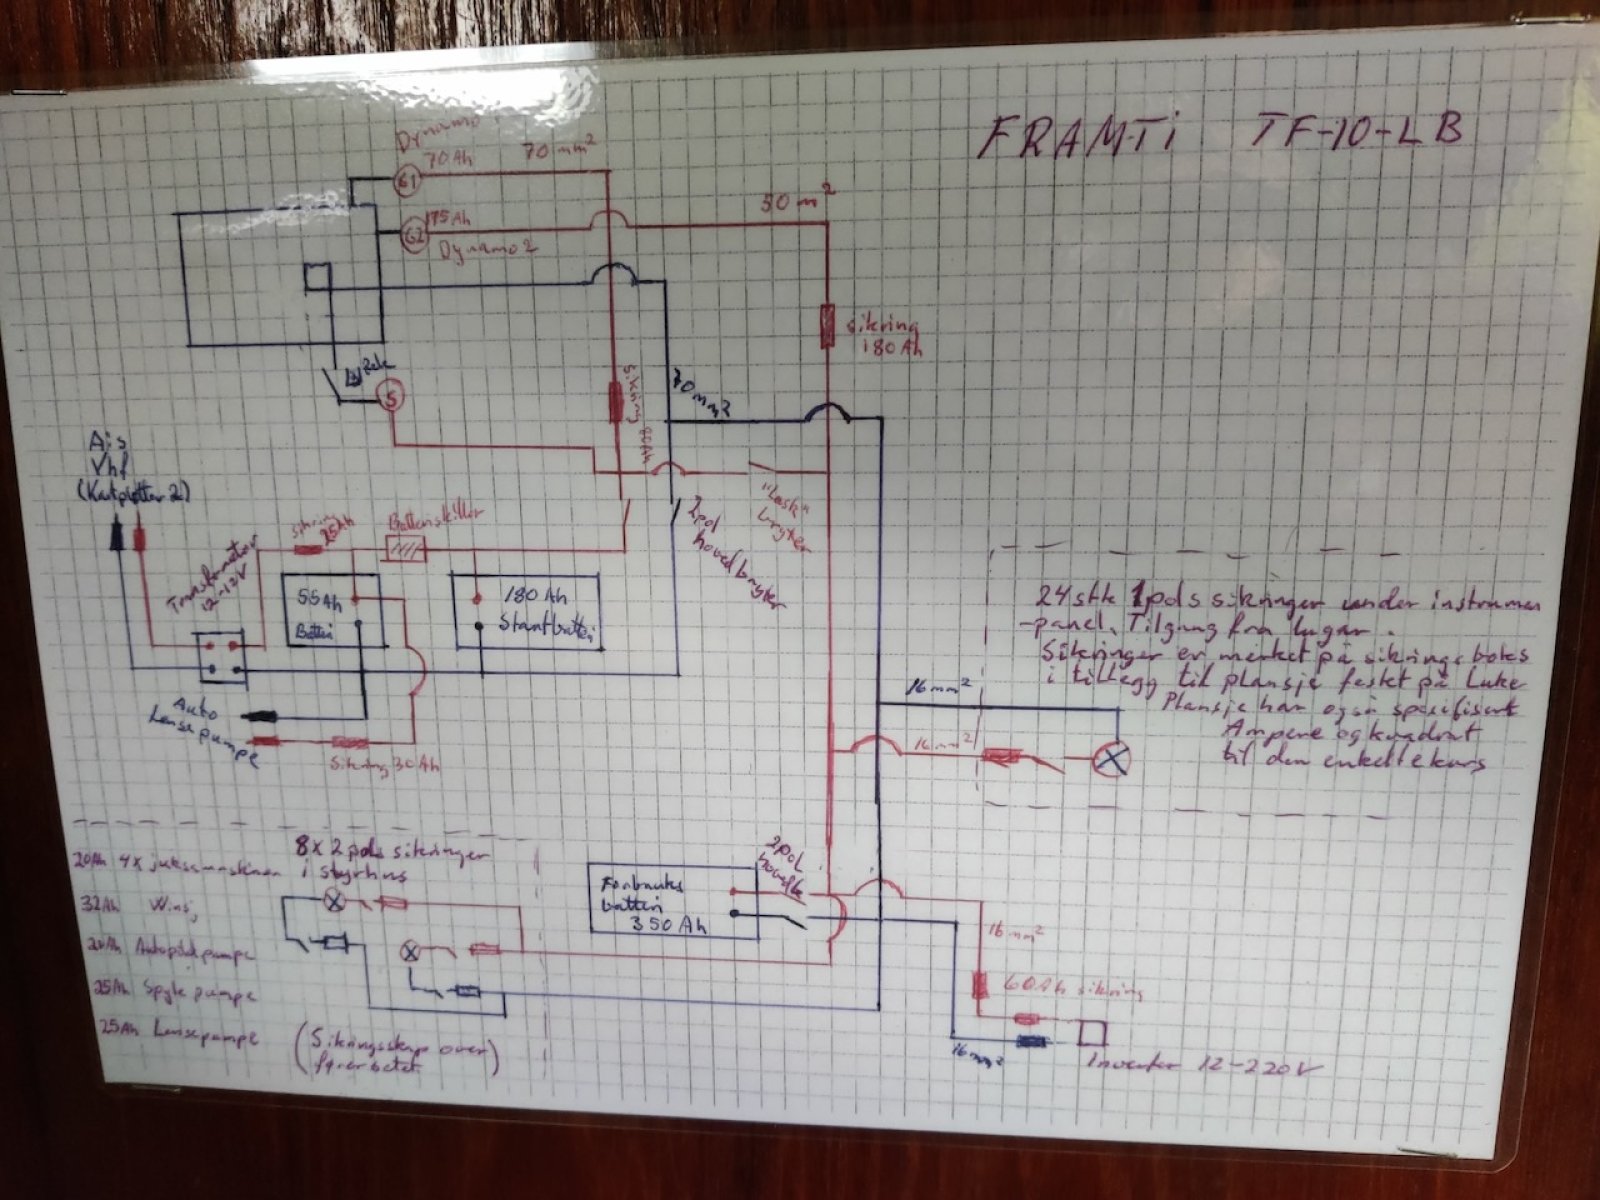 FRAMTi TF-10-LB
Dynamo
70Ah
70 mm²
G1
75Ah
G2
Dynamo 2
50 m²
sikring
180 Ah
Sikring
70mm²
S
Ais
Vhf
(Kartplotter 2)
sikring
25Ah
Batteriskiller
Transformator
12-12V
55Ah
Batteri
180 Ah
Startbatteri
2pol
hovedbryter
"Lask"
bryter
Auto
Lensepumpe
Sikring 30Ah
24stk 1pols sikringer under instrumen
-panel. Tilgang fra lugar.
Sikringer er merket på sikringsboks
i tillegg til plansje festet på Luke
Plansje har også spesifisert
Ampere og kvadrat
til den enkelte kurs
16mm²
16mm²
8x2pols sikringer
i styrhus
20Ah 4x juksamaskiner
32Ah Winsj
Autopilotpumpe
25Ah Spyle pumpe
25Ah Lensepumpe
(Sikringsskap over
førerbetet)
Forbruks
batteri
350 Ah
2pol
16mm²
60Ah sikring
16mm²
Inverter 12-220V